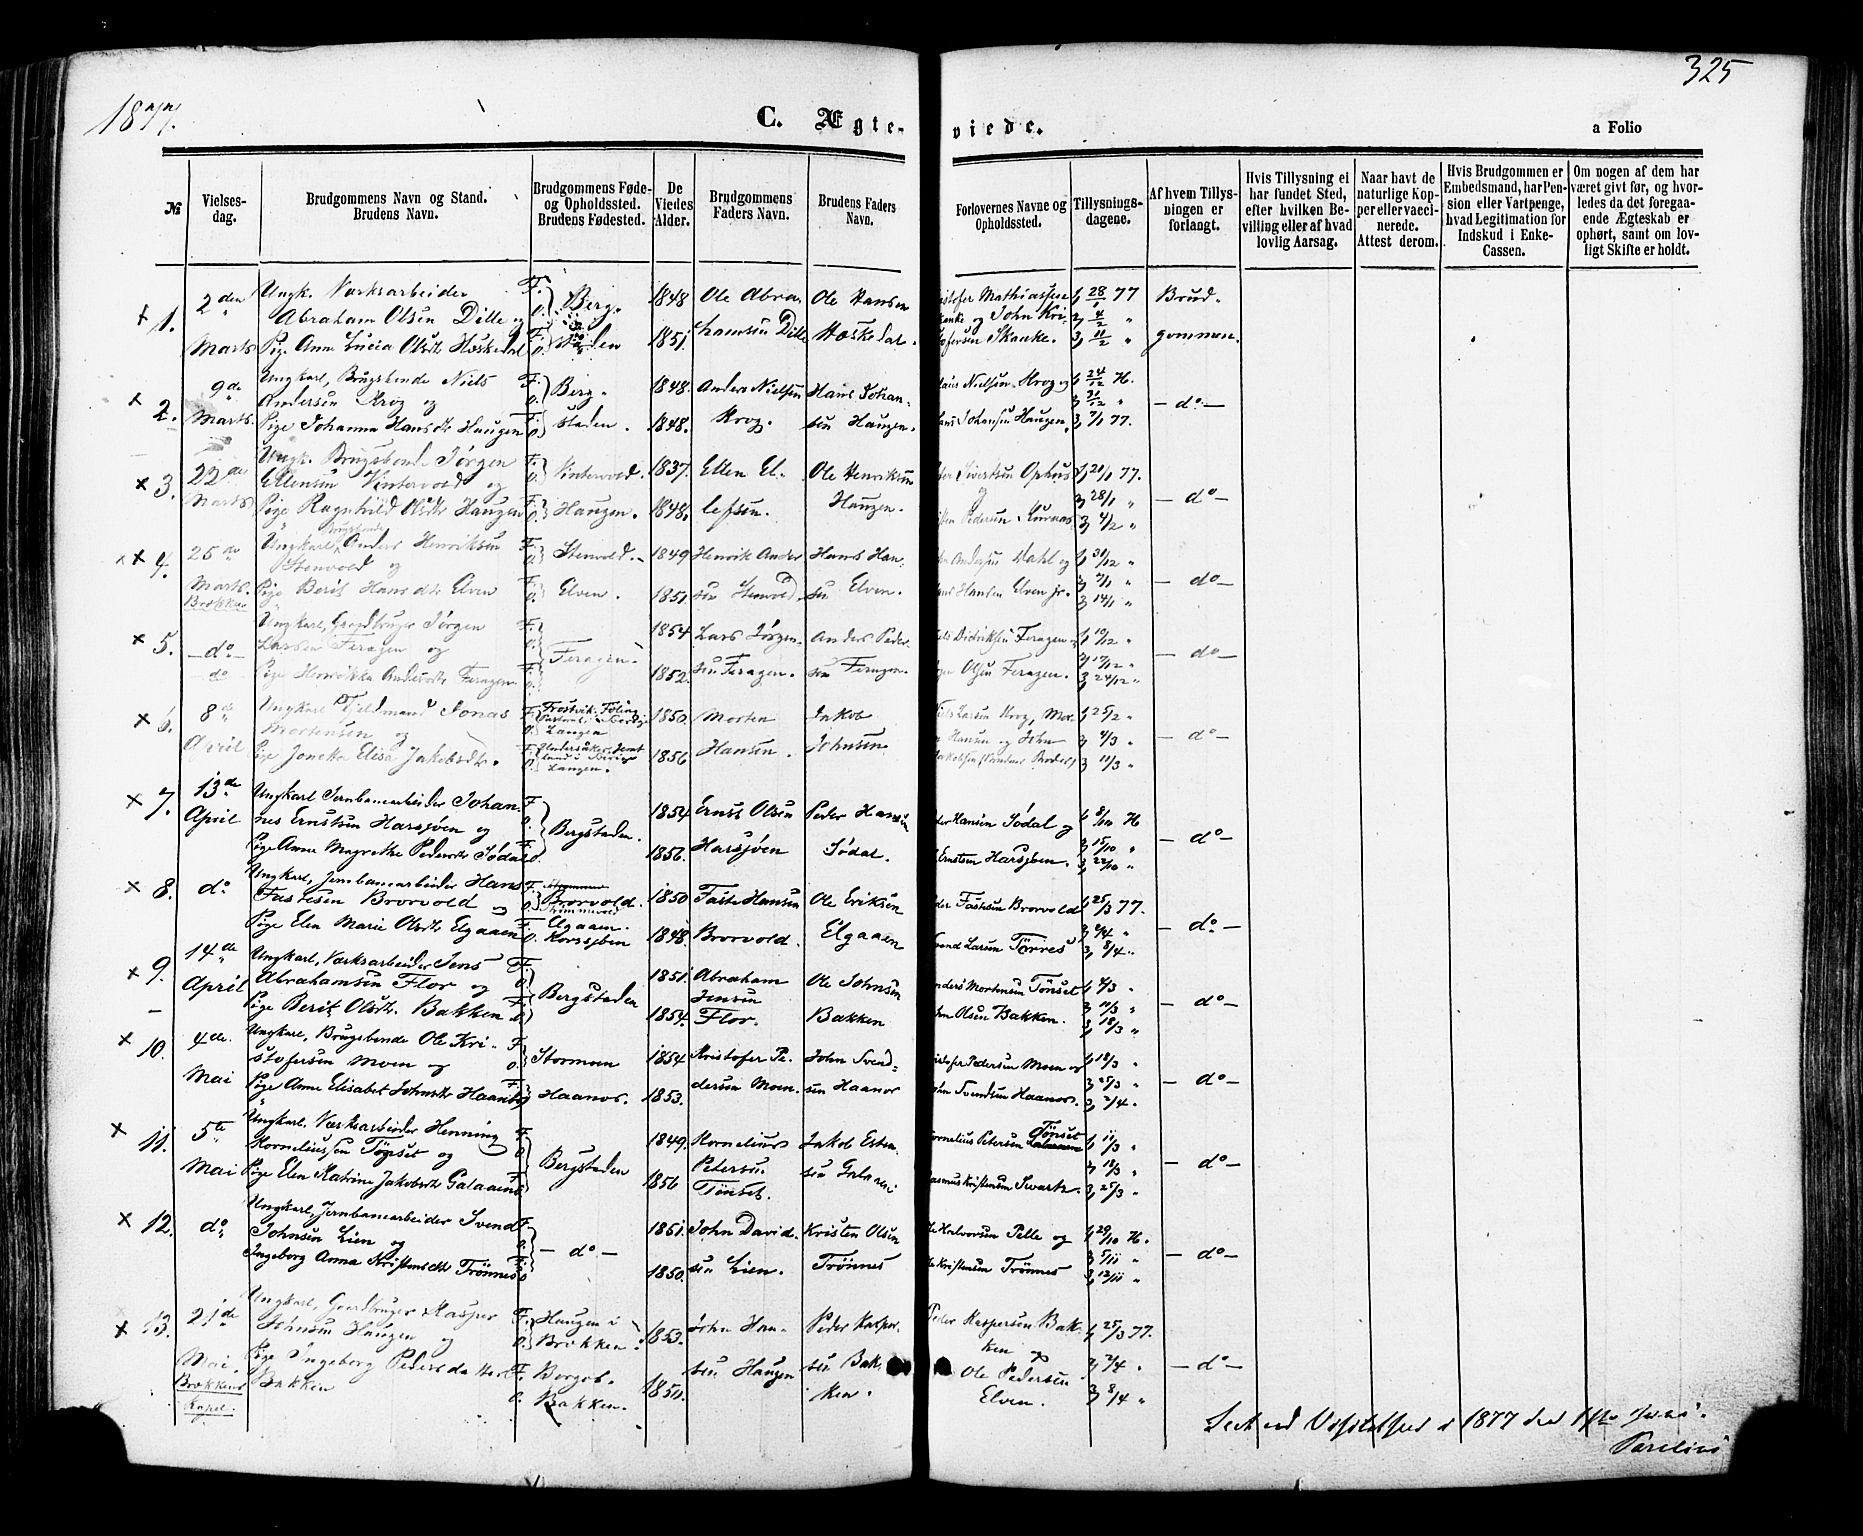 1877.
325
C. Ægteviede.
a Folio
№
Vielsesdag.
Brudgommens Navn og Stand.
Brudens Navn.
Brudgommens Føde- og Opholdssted.
Brudens Fødested.
De Viedes Alder.
Brudgommens Faders Navn.
Brudens Faders Navn.
Forlovernes Navne og Opholdssted.
Tillysningsdagene.
Af hvem Tillysningen er forlangt.
Hvis Tillysning ei har fundet Sted, efter hvilken Bevilling eller af hvad lovlig Aarsag.
Naar havt de naturlige Kopper eller vaccinerede. Attest derom.
Hvis Brudgommen er Embedsmand, har Pension eller Vartpenge, hvad Legitimation for Indskud i Enke-Cassen.
Om nogen af dem har været givt før, og hvorledes da det foregaaende Ægteskab er ophørt, samt om lovligt Skifte er holdt.
1. 2den Ungk. Værksarbeider F. Berg- 1848 Ole Abra- Ole Hansen Mathiassen 1, 28/1 77 Brud-
Abraham Olsen Dille og O. og John Kri- 2, 4/2 "
Marts Pige Anne Lucia Olsdtr Hoskedal F. O. staden 1851. hamsen Dille Hoskedal. stofersen Skanke. 3, 11/2 " gommen.
2. 9de Ungkarl, Brugsbende Niels F. Berg- 1848. Anders Nielsen Hans Johan- Nielsen Krog og 1, 24/12 76.
Andersen Krog og O. 2, 31/12 " — do —
Marts. Pige Johanna Hansdtr Haugen F. O. staden. 1848. Krog. sen Haugen. Johansen Haugen. 3, 7/1 77.
3. 22de Ungk. Brugsbende Jørgen F. Vintervold. 1837. Ellen El- Ole Henriksen Sivertsen Ophus 1, 21/1 77.
Ellensen Vintervold og O. og 2, 28/1 " — do —
Marts Pige Ragnhild Olsdtr Haugen F. O. Haugen. 1848. lefsen. Haugen. Pedersen 3, 4/2 "
4. 25de Ungkarl, Brugsbende Anders Henriksen F. Stenvold. 1849 Henrik Ander- Hans Han- Andersen Dahl og 1, 31/12 "
Stenvold og O. 2, 7/1 " — do —
Marts. Pige Berit Hansdtr Elven F. O. Elven. 1851. sen Stenvold. sen Elven. Hansen Elven jr. 3, 14/1 "
Brækken
5. — do — Ungkarl, Gaardbruger Jørgen F. Feragen. 1854 Lars Jørgen- Anders Peder- Didriksen Feragen 1, 10/12 "
Larsen Feragen og O. 2, 17/12 " — do —
— do Pige Henrikka Andersdtr Feragen F. O. 1852. sen Feragen. sen Feragen. Olsen Feragen. 3, 24/12 "
6. 8de Ungkarl Fjeldmand Jonas F. Frostvik, Føling 1850. Morten Jakob Niels Larsen Krog, Mor- 1, 25/2 "
Mortensen og O. Langen Hansen og John 2, 4/3 " — do —
April Pige Jonetta Elisa Jakobsdtr. F. O. Langen. 1856 Hansen. Johnsen 3, 11/3 "
7. 13de Ungkarl Jernbanearbeider Johan- F. 1854 Ernst Olsen Peder Hansen Hansen Sødal og 1, 8/10 76
April nes Ernstsen Harsjøen og O. Bergstaden. 2, 15/10 " — do —
Pige Anne Magrethe Pedersdtr Sødal F. O. 1856. Harsjøen Sødal. Ernstsen Harsjøen. 3, 22/10 "
8. do. Ungkarl, Jernbanearbeider Hans F. Brorvold. 1850 Faste Hansen Ole Eriksen Fastesen Brorvold 1, 25/3 77.
Fastesen Brorvold og O. 2, — do —
Pige Elen Marie Olsdtr Elgaaen F. Elgaaen. O. Korssjøen 1848. Brorvold. Elgaaen Larsen Törres 3, 8/4 "
9. 14de Ungkarl, Værksarbeider Jens F. 1851. Abraham Ole Johnsen Mortensen Tönset 1, 4/3 "
April Abrahamsen Flor og O. Bergstaden Jensen 2, 11/3 " — do —
Pige Berit Olsdtr. Bakken F. O. 1854. Flor. Bakken Olsen Bakken. 3, 18/3 "
10. 4de. Ungkarl, Brugsbende Ole Kri- F. Stormoen 1854 Kristofer Pe- John Svend- Pedersen Moen og 1, 18/3 "
stofersen Moen og O. 2, 25/3 " — do —
Mai Pige Anne Elisabet Johnsdtr Haanos F. O. Haanos. 1853. dersen Moen. sen Haanos Svendsen Haanos. 3, 2/4 "
11. 5te Ungkarl. Værksarbeider Henning F. 1849. Kornelius Jakob Esten- Kornelius Petersen Tönset 1, 11/3 "
Korneliussen Tönset og O. Bergstaden Petersen 2, 18/3 " — do —
Mai Pige Elen Katrine Jakobsdtr Galaaen F. O. 1856 Tönset. sen Galaaen Rasmus Kristensen Swartz. 3, 25/3 "
12. do. Ungkarl, Jernbanearbeider Svend F. 1851. John David- Kristen Olsen Halvorsen Pelle og 1, 29/10 76.
Johnsen Lien og O. — do — 2, 5/11 " — do —
Ingeborg Anna Kristensdtr Trönnes F. O. 1850. sen Lien. Trönnes Kristensen Trönnes 3, 12/11 "
13. 21de Ungkarl, Gaardbruger Kasper F. Haugen i 1853. John Han- Peder Kasper- Peder Kaspersen Bak- 1, 25/3 77.
Johnsen Haugen og O. Brækken. ken og 2, 2/4 " — do —
Mai Pige Ingeborg Pedersdatter F. Borgos. 1850. sen Haugen sen Bak- Ole Pedersen
Brækkens Bakken O. Bakken. ken. Elven. 3, 8/4 "
Kapel.
1877